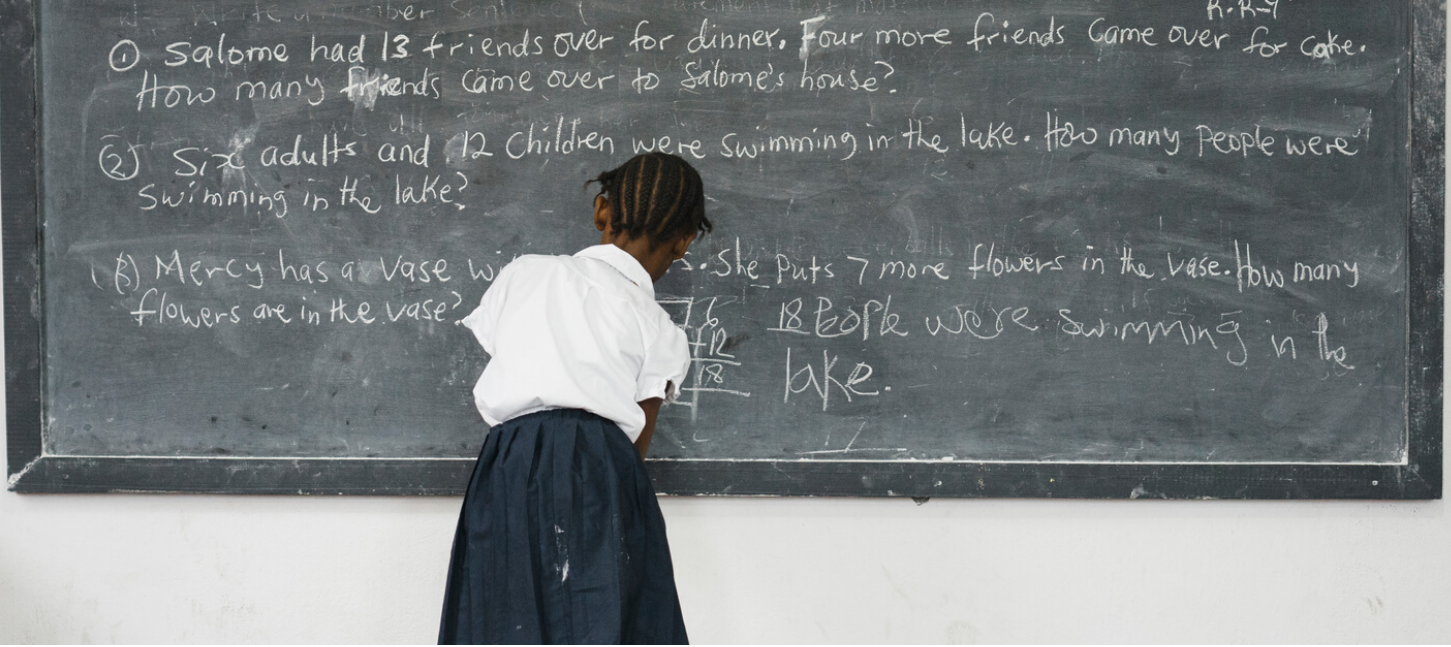 Write a number Sentence
K.K-4
① Salome had 13 friends over for dinner. Four more friends Came over for cake.
How many friends came over to Salome's house?
② Six adults and 12 Children were swimming in the lake. How many People were
swimming in the lake?
Mercy has a vase She puts 7 more flowers in the vase. How many
flowers are in the vase?
6 18 People were swimming in the
+12
18 lake.